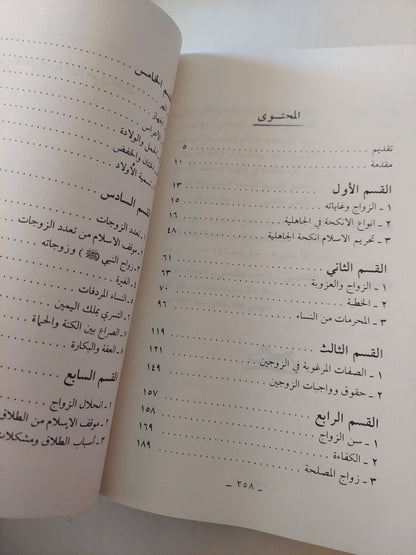 المحتوى
تقديم ........ ٥
مقدمة ........ ١٠
القسم الأول ........ ١٣
١ - الزواج وغاياته ........ ١٥
٢ - انواع الانكحة في الجاهلية ........ ١٦
٣ - تحريم الاسلام انكحة الجاهلية ........ ٤٨
القسم الثاني ........ ٦١
١ - الزواج والعزوبة ........ ٦٣
٢ - الخطبة ........ ٧٠
٣ - المحرمات من النساء ........ ٩٦
القسم الثالث ........ ١١٩
١ - الصفات المرغوبة في الزوجين ........ ١٢١
٢ - حقوق وواجبات الزوجين ........ ١٤٩
القسم الرابع ........ ١٥٧
١ - سن الزواج ........ ١٥٨
٢ - الكفاءة ........ ١٦٩
٣ - زواج المصلحة ........ ١٨٩
ـ ٣٥٨ ـ
الخامس
المهر
الجهاز
الاعراس
الحمل والولادة
الختان والخفض
تسمية الأولاد
القسم السادس
تعدد الزوجات
موقف الاسلام من تعدد الزوجات
زواج النبي (ﷺ) وزوجاته
الغيرة
النساء المردفات
التسري بملك اليمين
الصراع بين الكنة والحماة
٨ - العفة والبكارة
القسم السابع
١ - انحلال الزواج
٢ - موقف الاسلام من الطلاق
٣ - أسباب الطلاق ومشكلات